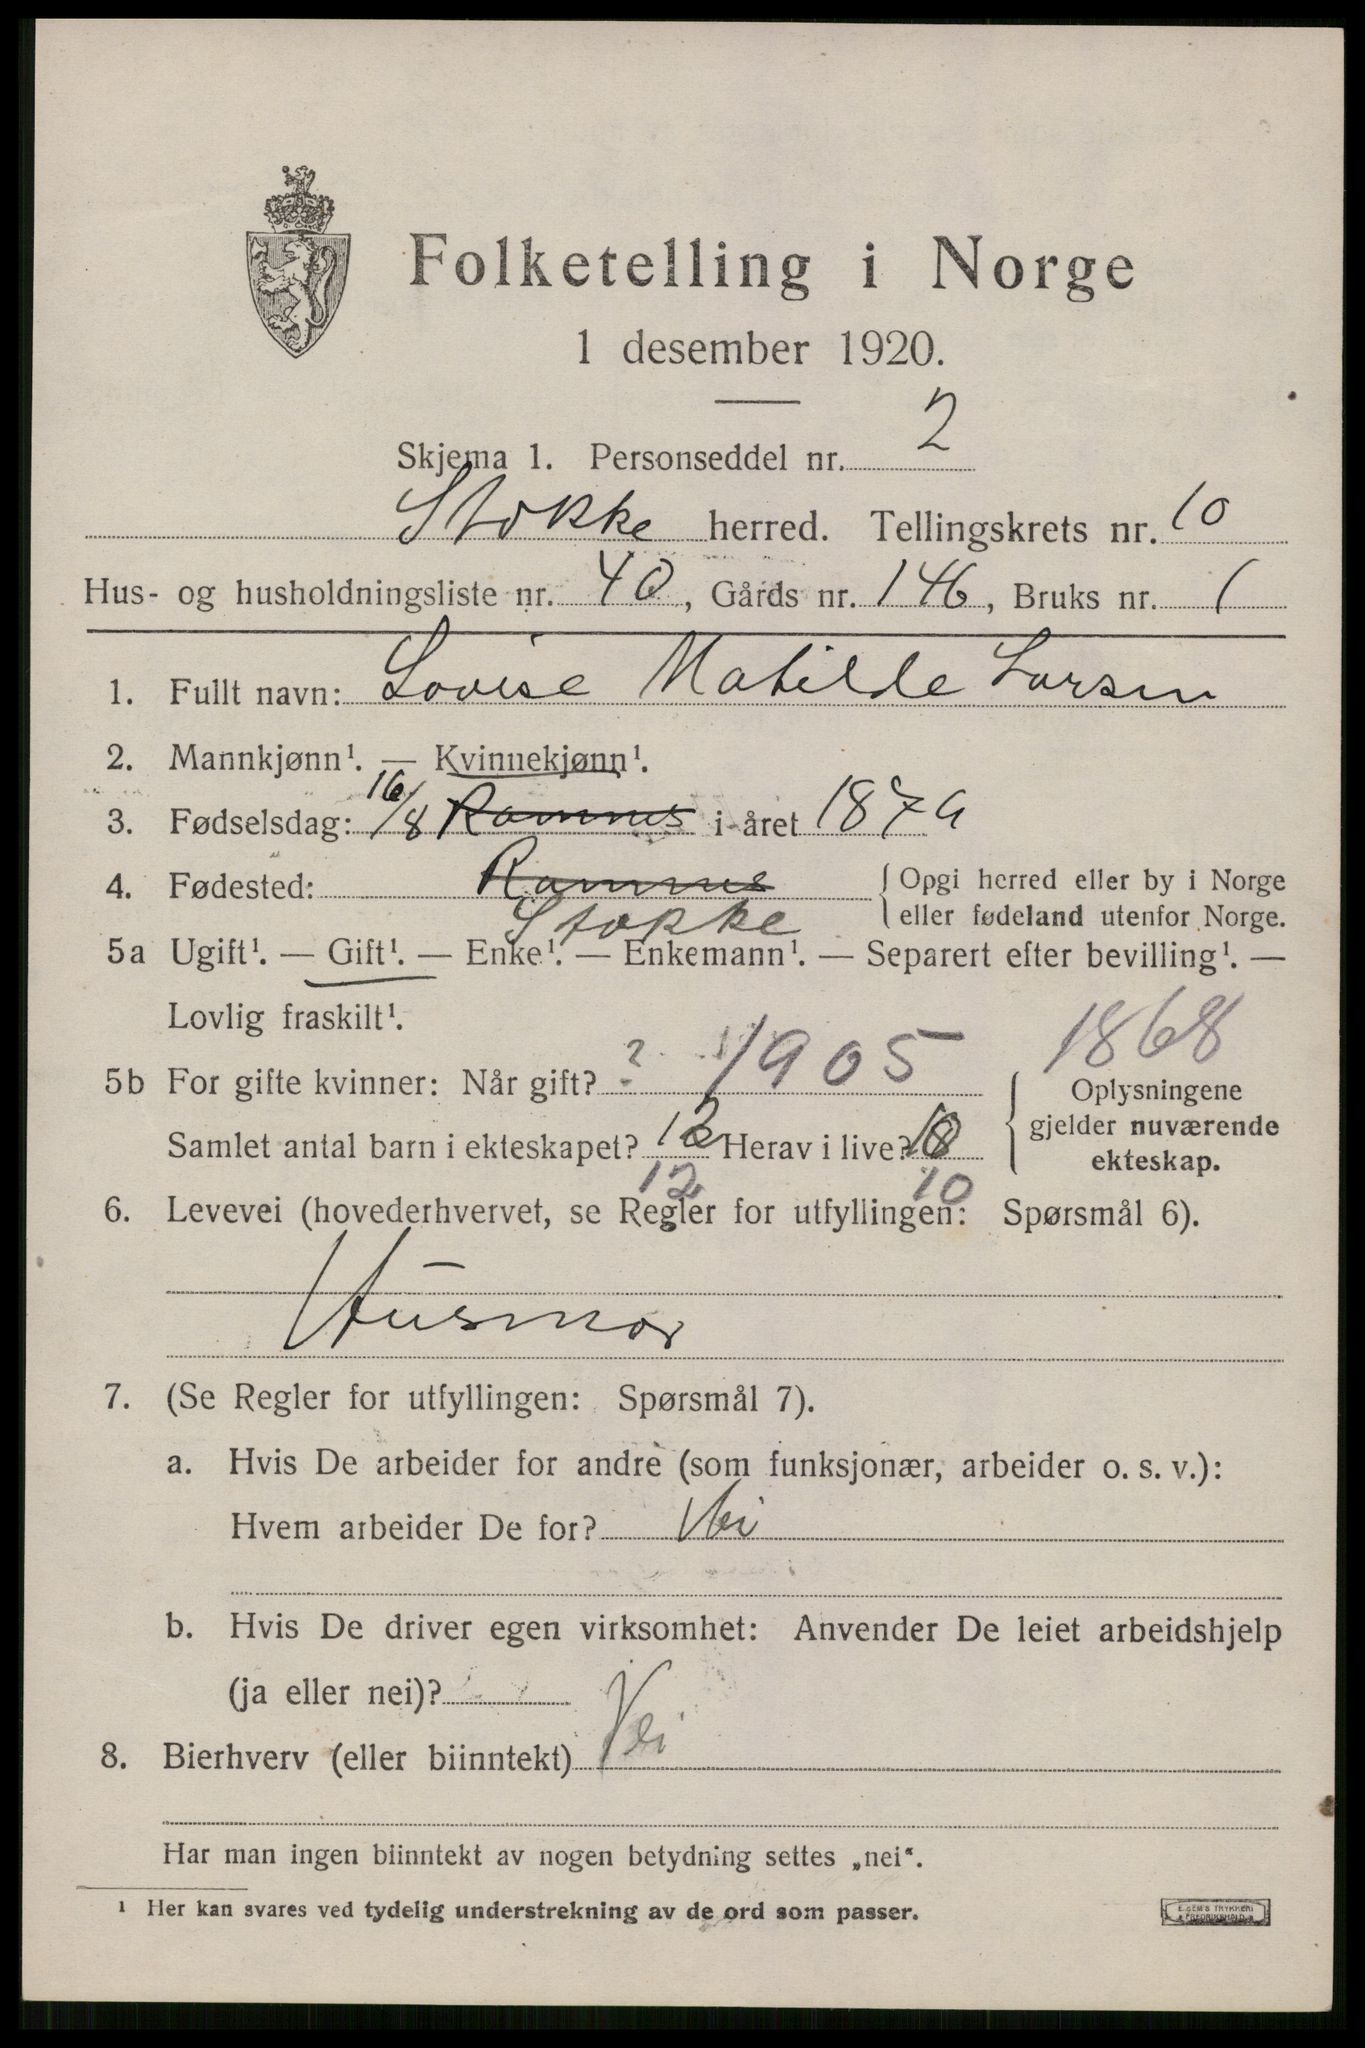 Folketelling i Norge
1 desember 1920.
Skjema 1. Personseddel nr. 2
Stokke herred. Tellingskrets nr. 10
Hus- og husholdningsliste nr. 40, Gårds nr. 146, Bruks nr. 1
1. Fullt navn: Lovise Matilde Larsen
2. Mannkjønn¹. — Kvinnekjønn¹.
3. Fødselsdag: 16/8 Ramnes i året 1879
4. Fødested: Ramnes
Stokke
{ Opgi herred eller by i Norge
eller fødeland utenfor Norge.
5a Ugift¹. — Gift¹. — Enke¹. — Enkemann¹. — Separert efter bevilling¹. —
Lovlig fraskilt¹.
1868
5b For gifte kvinner: Når gift? ? 1905
Samlet antal barn i ekteskapet? 12 Herav i live? 10
12 10
{ Oplysningene
gjelder nuværende
ekteskap.
6. Levevei (hovederhvervet, se Regler for utfyllingen: Spørsmål 6).
Husmor
7. (Se Regler for utfyllingen: Spørsmål 7).
a. Hvis De arbeider for andre (som funksjonær, arbeider o. s. v.):
Hvem arbeider De for? Nei
b. Hvis De driver egen virksomhet: Anvender De leiet arbeidshjelp
(ja eller nei)?
8. Bierhverv (eller biinntekt) Nei
Har man ingen biinntekt av nogen betydning settes „nei“.
¹ Her kan svares ved tydelig understrekning av de ord som passer.
E. SEM'S TRYKKERI
FREDRIKSHALD